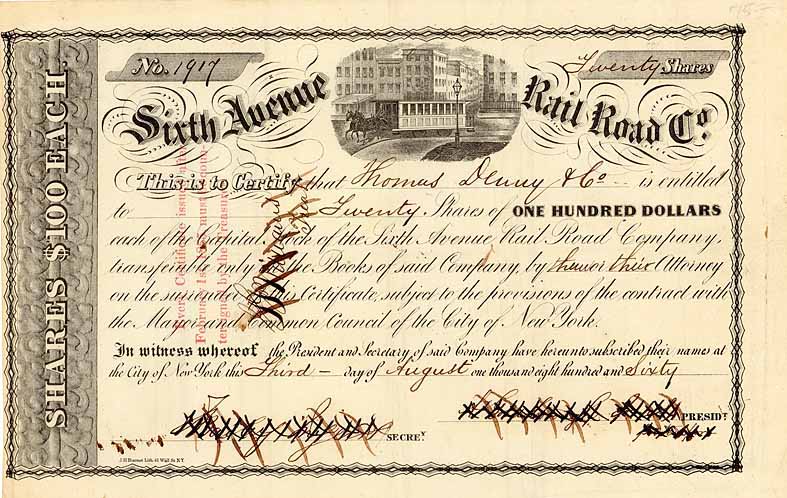 No. 1917
Twenty Shares
Sixth Avenue Rail Road Co.
SHARES $100 EACH.
This is to Certify that Thomas Denny & Co is entitled
to Twenty Shares of ONE HUNDRED DOLLARS
each of the Capital Stock of the Sixth Avenue Rail Road Company,
transferable only on the Books of said Company, by them or their Attorney
on the surrender of this Certificate, subject to the provisions of the contract with
the Mayor and Common Council of the City of New York.
In witness whereof the President and Secretary of said Company have hereunto subscribed their names at
the City of New York this Third day of August one thousand eight hundred and Sixty
SECRE.Y
PRESIDT.
Every Certificate issued
February 1st must
be signed by the Treasurer